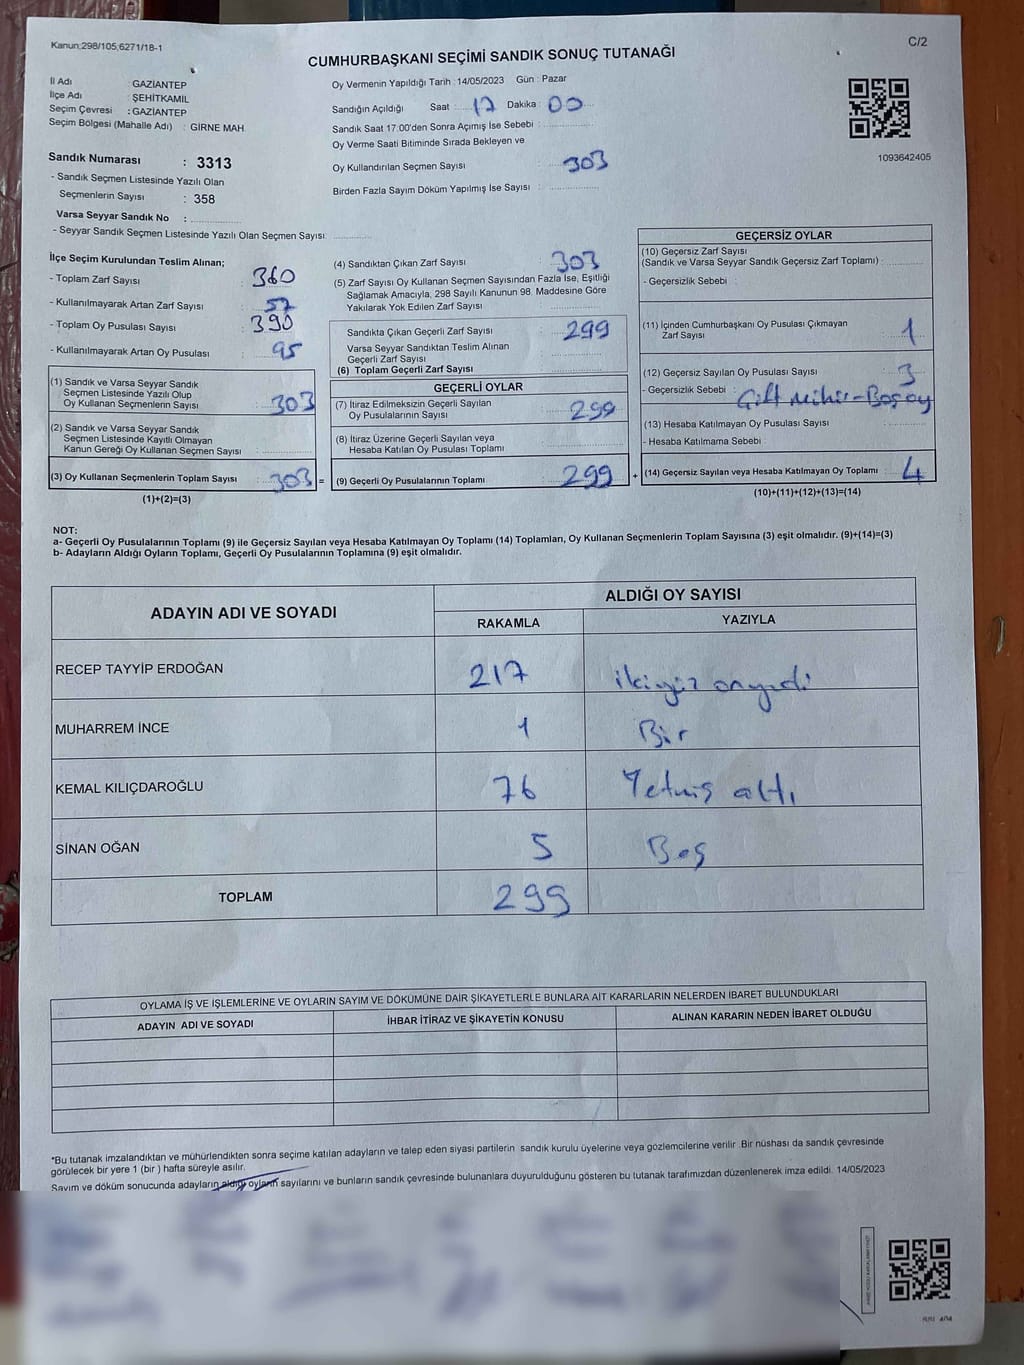 Kanun:298/105,6271/18-1
C/2
CUMHURBAŞKANI SEÇİMİ SANDIK SONUÇ TUTANAĞI
İl Adı : GAZİANTEP
İlçe Adı : ŞEHİTKAMİL
Seçim Çevresi : GAZİANTEP
Seçim Bölgesi (Mahalle Adı) : GIRNE MAH
Sandık Numarası : 3313
- Sandık Seçmen Listesinde Yazılı Olan
Seçmenlerin Sayısı : 358
Varsa Seyyar Sandık No :
- Seyyar Sandık Seçmen Listesinde Yazılı Olan Seçmen Sayısı:
Oy Vermenin Yapıldığı Tarih : 14/05/2023 Gün : Pazar
Sandığın Açıldığı Saat : 17 Dakika : 00
Sandık Saat 17.00'den Sonra Açımış İse Sebebi :
Oy Verme Saati Bitiminde Sırada Bekleyen ve
Oy Kullandırılan Seçmen Sayısı : 303
Birden Fazla Sayım Döküm Yapılmış İse Sayısı :
1093642405
İlçe Seçim Kurulundan Teslim Alınan;
- Toplam Zarf Sayısı : 360
- Kullanılmayarak Artan Zarf Sayısı : 57
- Toplam Oy Pusulası Sayısı : 390
- Kullanılmayarak Artan Oy Pusulası : 95
(1) Sandık ve Varsa Seyyar Sandık
Seçmen Listesinde Yazılı Olup
Oy Kullanan Seçmenlerin Sayısı : 303
(2) Sandık ve Varsa Seyyar Sandık
Seçmen Listesinde Kayıtlı Olmayan
Kanun Gereği Oy Kullanan Seçmen Sayısı :
(3) Oy Kullanan Seçmenlerin Toplam Sayısı : 303 =
(1)+(2)=(3)
(4) Sandıktan Çıkan Zarf Sayısı : 303
(5) Zarf Sayısı Oy Kullanan Seçmen Sayısından Fazla İse, Eşitliği
Sağlamak Amacıyla, 298 Sayılı Kanunun 98. Maddesine Göre
Yakılarak Yok Edilen Zarf Sayısı :
Sandıkta Çıkan Geçerli Zarf Sayısı : 299
Varsa Seyyar Sandıktan Teslim Alınan
Geçerli Zarf Sayısı :
(6) Toplam Geçerli Zarf Sayısı :
GEÇERLİ OYLAR
(7) İtiraz Edilmeksizin Geçerli Sayılan
Oy Pusulalarının Sayısı : 299
(8) İtiraz Üzerine Geçerli Sayılan veya
Hesaba Katılan Oy Pusulası Toplamı :
(9) Geçerli Oy Pusulalarının Toplamı : 299 +
GEÇERSİZ OYLAR
(10) Geçersiz Zarf Sayısı
(Sandık ve Varsa Seyyar Sandık Geçersiz Zarf Toplamı) :
- Geçersizlik Sebebi :
(11) İçinden Cumhurbaşkanı Oy Pusulası Çıkmayan
Zarf Sayısı : 1
(12) Geçersiz Sayılan Oy Pusulası Sayısı : 3
- Geçersizlik Sebebi : Çift Mühür-Boş oy
(13) Hesaba Katılmayan Oy Pusulası Sayısı :
- Hesaba Katılmama Sebebi :
(14) Geçersiz Sayılan veya Hesaba Katılmayan Oy Toplamı : 4
(10)+(11)+(12)+(13)=(14)
NOT:
a- Geçerli Oy Pusulalarının Toplamı (9) ile Geçersiz Sayılan veya Hesaba Katılmayan Oy Toplamı (14) Toplamları, Oy Kullanan Seçmenlerin Toplam Sayısına (3) eşit olmalıdır. (9)+(14)=(3)
b- Adayların Aldığı Oyların Toplamı, Geçerli Oy Pusulalarının Toplamına (9) eşit olmalıdır.
ADAYIN ADI VE SOYADI
ALDIĞI OY SAYISI
RAKAMLA YAZIYLA
RECEP TAYYİP ERDOĞAN 217 ikiyüz onyedi
MUHARREM İNCE 1 Bir
KEMAL KILIÇDAROĞLU 76 Yetmiş altı
SİNAN OĞAN 5 Beş
TOPLAM 299
OYLAMA İŞ VE İŞLEMLERİNE VE OYLARIN SAYIM VE DÖKÜMÜNE DAİR ŞİKAYETLERLE BUNLARA AİT KARARLARIN NELERDEN İBARET BULUNDUKLARI
ADAYIN ADI VE SOYADI İHBAR İTİRAZ VE ŞİKAYETİN KONUSU ALINAN KARARIN NEDEN İBARET OLDUĞU
*Bu tutanak imzalandıktan ve mühürlendikten sonra seçime katılan adayların ve talep eden siyasi partilerin sandık kurulu üyelerine veya gözlemcilerine verilir. Bir nüshası da sandık çevresinde
görülecek bir yere 1 (bir ) hafta süreyle asılır.
Sayım ve döküm sonucunda adayların aldığı oyların sayılarını ve bunların sandık çevresinde bulunanlara duyurulduğunu gösteren bu tutanak tarafımızdan düzenlenerek imza edildi. 14/05/2023